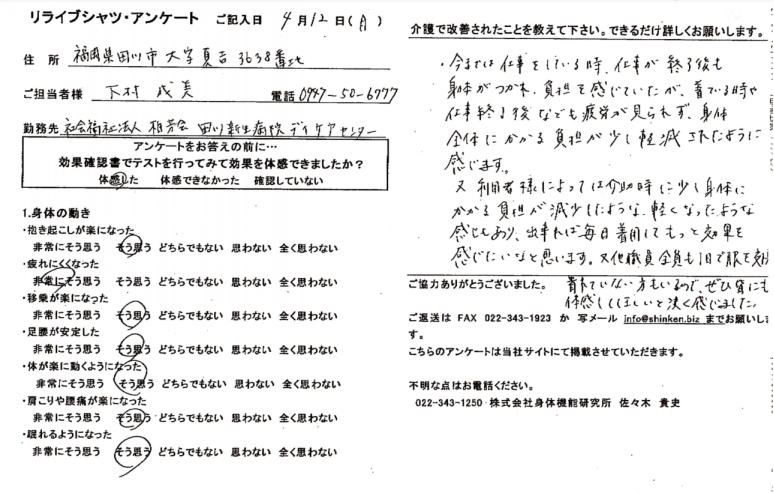 リライブシャツ・アンケート ご記入日 4月12日(月)
住 所 福岡県田川市大字夏吉3638番地
ご担当者様 下村 成美 電話 0947-50-6777
勤務先 社会福祉法人 相芳会 田川新生病院デイケアセンター
アンケートをお答えの前に…
効果確認書でテストを行ってみて効果を体感できましたか?
体感した 体感できなかった 確認していない
1.身体の動き
・抱き起こしが楽になった
非常にそう思う そう思う どちらでもない 思わない 全く思わない
・疲れにくくなった
非常にそう思う そう思う どちらでもない 思わない 全く思わない
・移乗が楽になった
非常にそう思う そう思う どちらでもない 思わない 全く思わない
・足腰が安定した
非常にそう思う そう思う どちらでもない 思わない 全く思わない
・体が楽に動くようになった
非常にそう思う そう思う どちらでもない 思わない 全く思わない
・肩こりや腰痛が楽になった
非常にそう思う そう思う どちらでもない 思わない 全く思わない
・眠れるようになった
非常にそう思う そう思う どちらでもない 思わない 全く思わない
介護で改善されたことを教えて下さい。できるだけ詳しくお願いします。
・今までは仕事をしている時、仕事が終了後も
身体がつかれ、負担を感じていたが、着ている時や
仕事終了後なども疲労が見られず、身体
全体にかかる負担が少し軽減されたように
感じます。
又利用者様によっては介助時に少し身体に
かかる負担が減少したような、軽くなったような
感じもあり、出来れば毎日着用してもっと効果を
感じたいなと思います。又他職員全員も1日で服を効
ご協力ありがとうございました。 着れていない方もいるので、ぜひ皆にも
体感してほしいと深く感じました。
ご返送は FAX 022-343-1923 か 写メール info@shinken.biz までお願いしま
す。
こちらのアンケートは当社サイトにて掲載させていただきます。
不明な点はお電話ください。
022-343-1250 株式会社身体機能研究所 佐々木 貴史